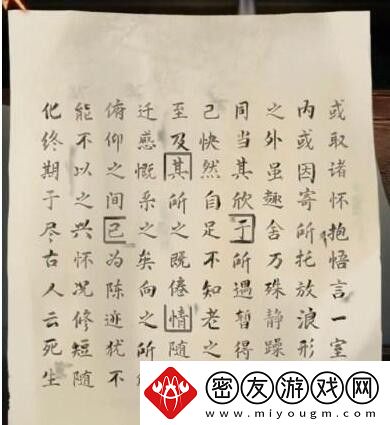 或取诸怀抱悟言一室
内或因寄所托放浪形
之外虽趣舍万殊静躁
同当其欣于所遇暂得
己快然自足不知老之
至及其所之既倦情随
迁感慨系之矣向之所
俯仰之间已为陈迹犹不
能不以之兴怀况修短随
化终期于尽古人云死生
密友游戏网
www.miyougm.com